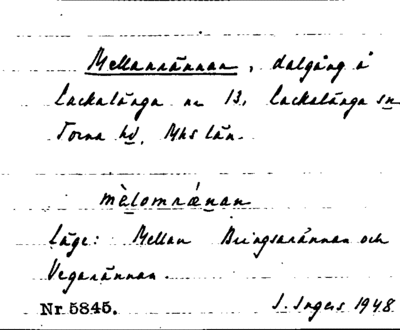 Mellanrännan, dalgång å
Lackalänga nr 13, Lackalänga sn
Torna hd, Mhs län.
mèlomrǽnan
Läge: Mellan Bringsarännan och
Vegarännan
Nr 5845. I. Ingers 1948